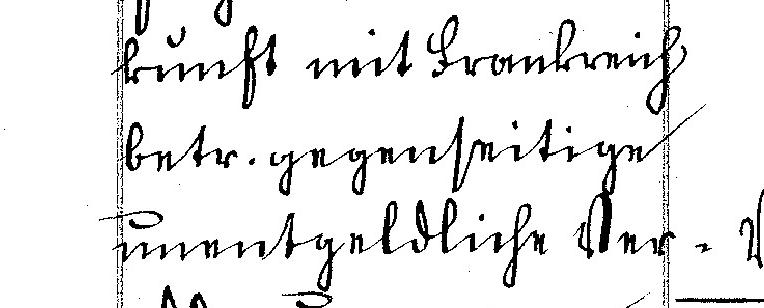 kunft mit Frankreich
betr. gegenseitige
unentgeldliche Ver-